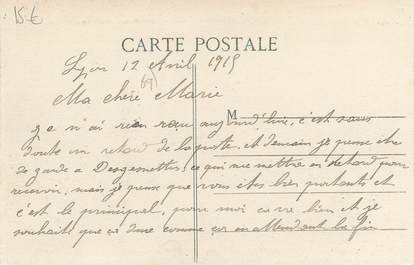 15 €
CARTE POSTALE
Lyon 12 Avril 1915
(69)
Ma chère Marie
M
je n'ai rien reçu aujourd'hui, c'est sans
doute un retard de la poste, et demain je pense être
de garde a Desgenettes, ce qui me mettra en retard pour
recevoir, mais je pense que vous êtes bien portants et
c'est le principal, pour moi ca va bien et je
souhaite que ca dure comme ca en attendant la fin